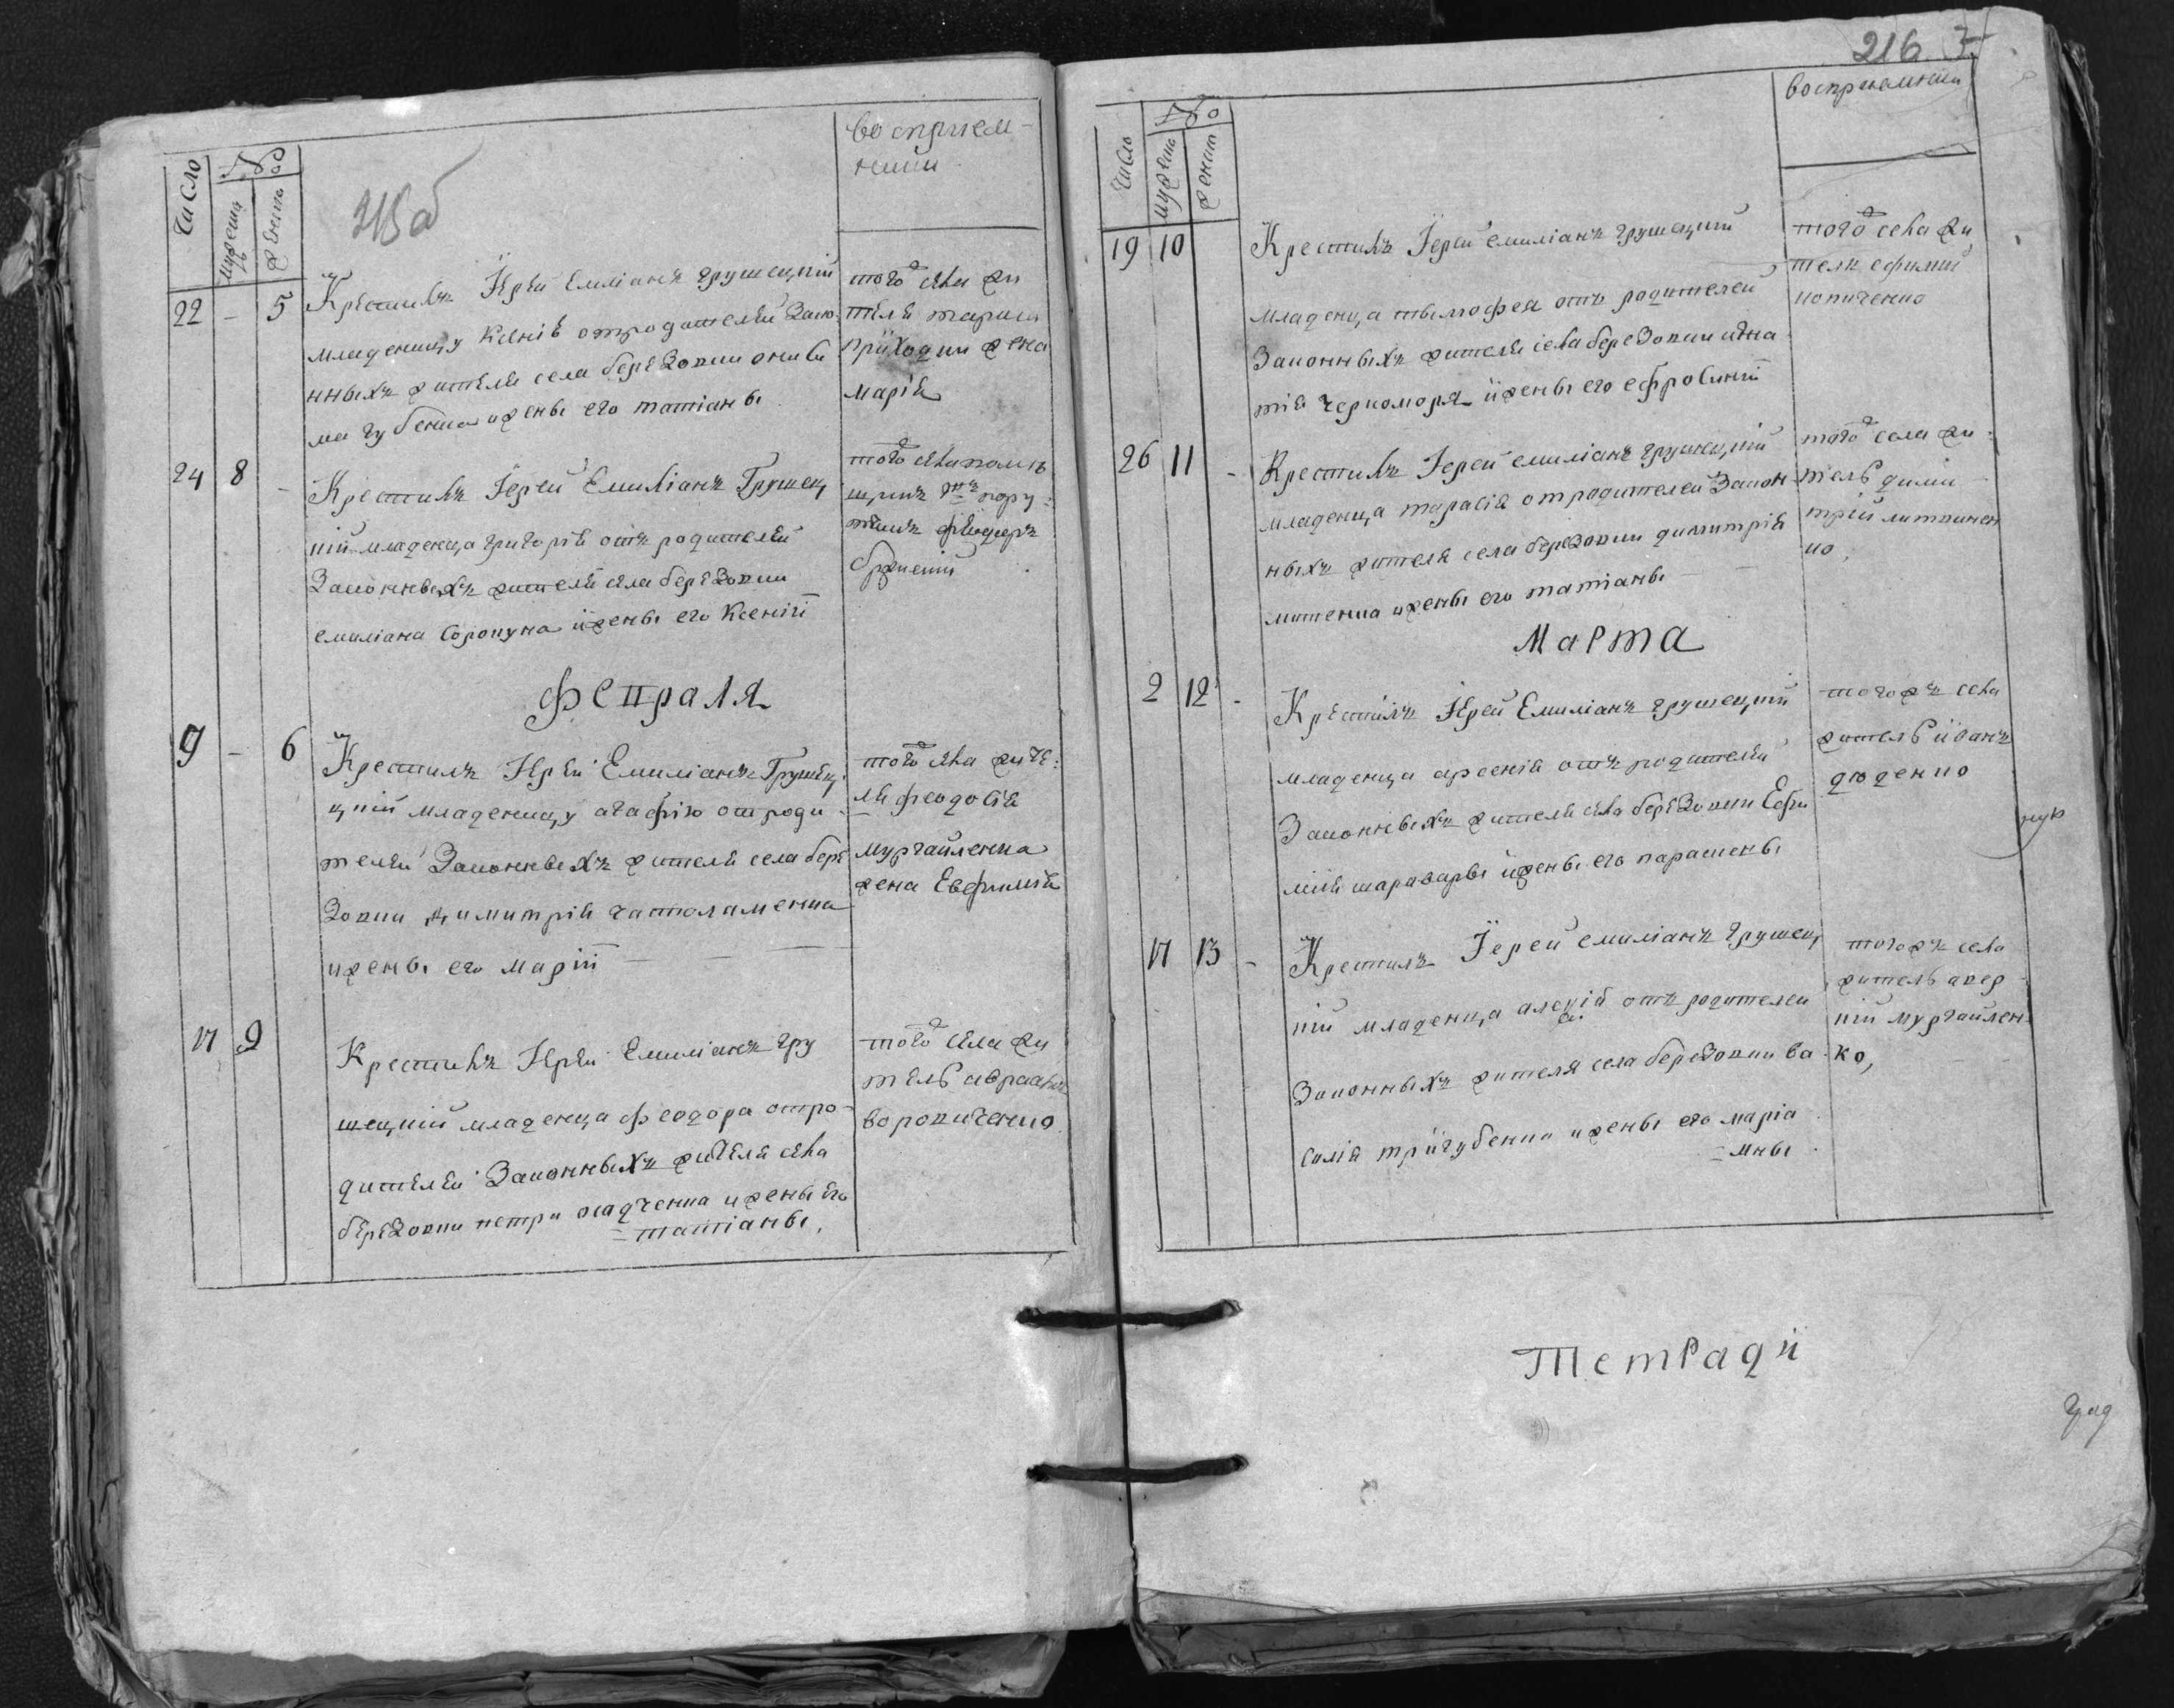 215 об
Число
№
мужеска
женска
восприем-
ники
22 - 5
Крестилъ Іерей Емиліанъ грушецкій
младеницу Ксенію от родителей зако-
нныхъ жителя села березовки
ма губенка и жены его татіаны
того ж села жи
теля тараса
приходки жена
марія
24 8 -
Крестилъ Іерей Емиліанъ Грушец
кій младенца григорія отъ родителей
законныхъ жителя села березовки
емиліана сорокуна и жены его Ксеніи
того ж села помѣ
щикъ
феодоръ
февраля
9 - 6
Крестилъ Іерей Емиліанъ Грушец
цкій младеницу агафію от роди
телей законныхъ жителя села бере
зовки димитрія
и жены его маріи
того ж села жите
ля феодосія
мургайленка
жена Евфимія
17 9
Крестилъ Іерей Емиліанъ гру
шецкій младенца феодора от ро-
дителей законныхъ жителя села
березовки петра осадченка и жены его
татіаны.
того ж села жи
тель авраамъ
воропиченко
216
Число
№
мужеска
женска
восприемники
19 10
Крестилъ Іерей емиліанъ грушецкій
младенца тымофея отъ родителей
законныхъ жителя села березовки игна
тія черноморя и жены его ефросиніи
того ж села жи
тель ефимій
копиченко
26 11 -
Крестилъ Іерей емиліанъ грушецкій
младенца тарасія от родителей закон
ныхъ жителя села березовки димитрія
митенка и жены его татіаны
того ж села жи-
тель дими
трій литвинен
ко,
Марта
2 12 -
Крестилъ Іерей Емиліанъ грушецкій
младенца арсенія отъ родителей
законныхъ жителя села березовки Ефи
мія шаравары и жены его параскевы
того жъ села
житель иванъ
дюденко
17 13 -
Крестилъ Іерей емиліанъ грушец
кій младенца алексія отъ родителей
законныхъ жителя села березовки ва
силія тригубенка и жены его маріа
мны
того жъ села
житель авер
кій мургайлен
ко,
рук
Тетради
град